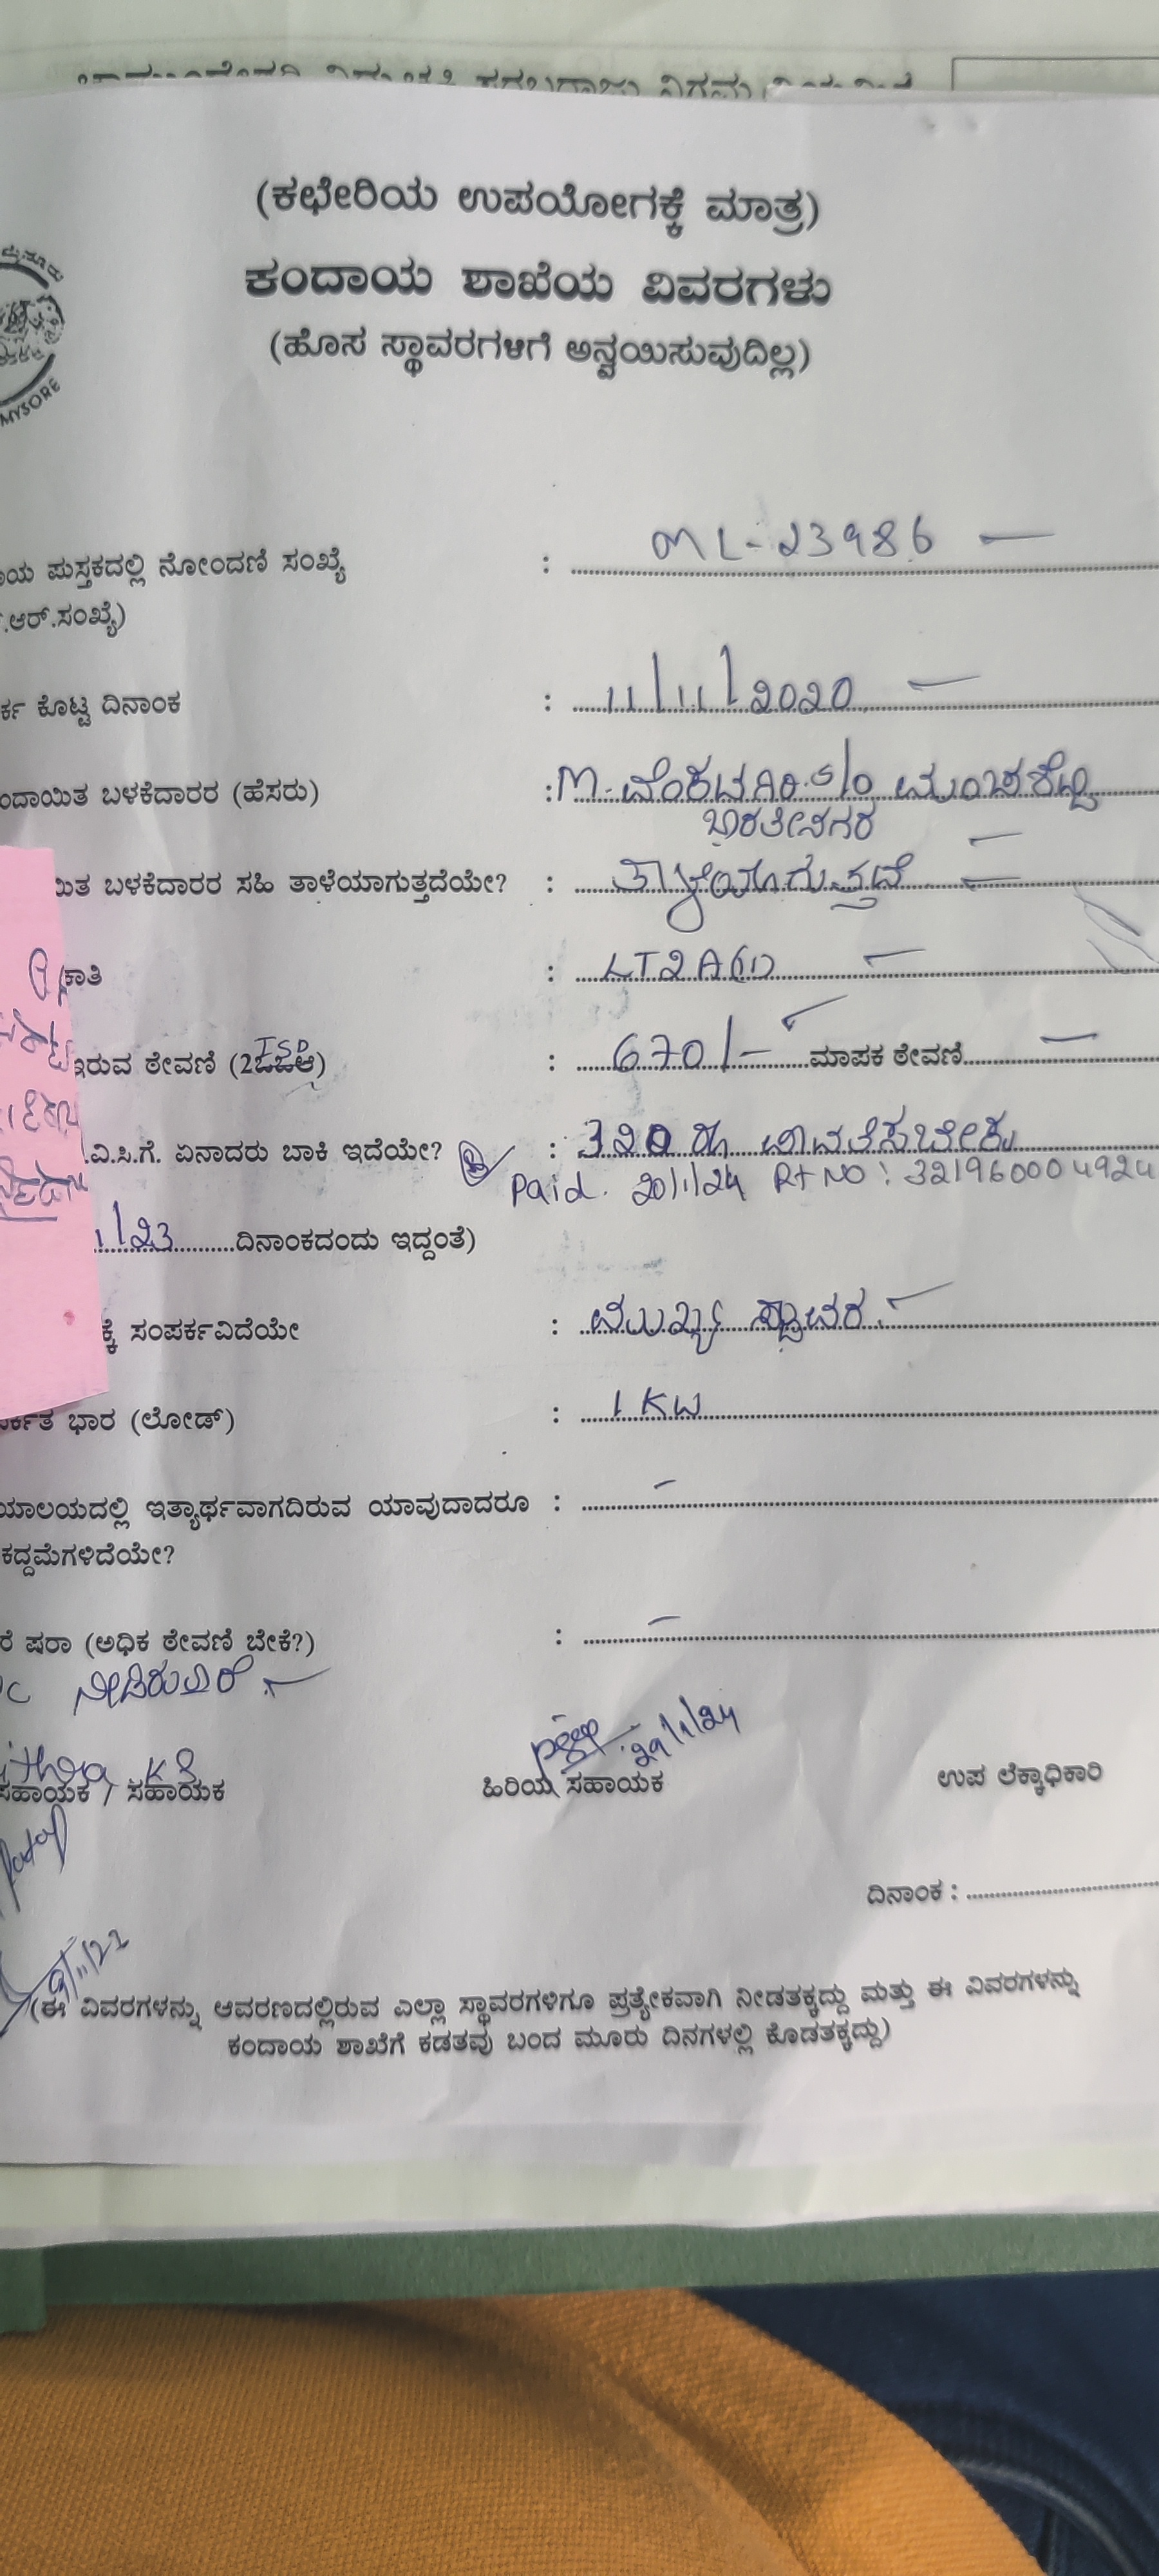 (ಕಛೇರಿಯ ಉಪಯೋಗಕ್ಕೆ ಮಾತ್ರ)
ಕಂದಾಯ ಶಾಖೆಯ ವಿವರಗಳು
(ಹೊಸ ಸ್ಥಾವರಗಳಿಗೆ ಅನ್ವಯಿಸುವುದಿಲ್ಲ)
MYSORE
ಪುಸ್ತಕದಲ್ಲಿ ನೋಂದಣಿ ಸಂಖ್ಯೆ : ML-23986
.ಆರ್.ಸಂಖ್ಯೆ)
ಕೊಟ್ಟ ದಿನಾಂಕ : 11/11/2020
ಬಳಕೆದಾರರ (ಹೆಸರು) : M. ವೆಂಕಟಗಿರಿ S/o
ಭಾರತೀನಗರ
ಬಳಕೆದಾರರ ಸಹಿ ತಾಳೆಯಾಗುತ್ತದೆಯೇ? : ತಾಳೆಯಾಗುತ್ತದೆ
: LT2A(i)
ಇರುವ ಠೇವಣಿ ISD : 670/- ಮಾಪಕ ಠೇವಣಿ
.ವಿ.ಸಿ.ಗೆ. ಏನಾದರು ಬಾಕಿ ಇದೆಯೇ? : 320 ರೂ ಪಾವತಿಸಬೇಕು
Paid. 20/1/24 Rt NO : 321960004924
1/23 ದಿನಾಂಕದಂದು ಇದ್ದಂತೆ)
ಸಂಪರ್ಕವಿದೆಯೇ : ಮುಖ್ಯ ಸ್ಥಾವರ
ಭಾರ (ಲೋಡ್) : 1 KW
ಇತ್ಯಾರ್ಥವಾಗದಿರುವ ಯಾವುದಾದರೂ : -
ಕದ್ದಮೆಗಳಿದೆಯೇ?
ಷರಾ (ಅಧಿಕ ಠೇವಣಿ ಬೇಕೆ?) : -
ನೀಡಿರುವರೆ
29/1/24
ಸಹಾಯಕ / ಸಹಾಯಕ ಹಿರಿಯ ಸಹಾಯಕ ಉಪ ಲೆಕ್ಕಾಧಿಕಾರಿ
ದಿನಾಂಕ :
(ಈ ವಿವರಗಳನ್ನು ಆವರಣದಲ್ಲಿರುವ ಎಲ್ಲಾ ಸ್ಥಾವರಗಳಿಗೂ ಪ್ರತ್ಯೇಕವಾಗಿ ನೀಡತಕ್ಕದ್ದು ಮತ್ತು ಈ ವಿವರಗಳನ್ನು
ಕಂದಾಯ ಶಾಖೆಗೆ ಕಡತವು ಬಂದ ಮೂರು ದಿನಗಳಲ್ಲಿ ಕೊಡತಕ್ಕದ್ದು)